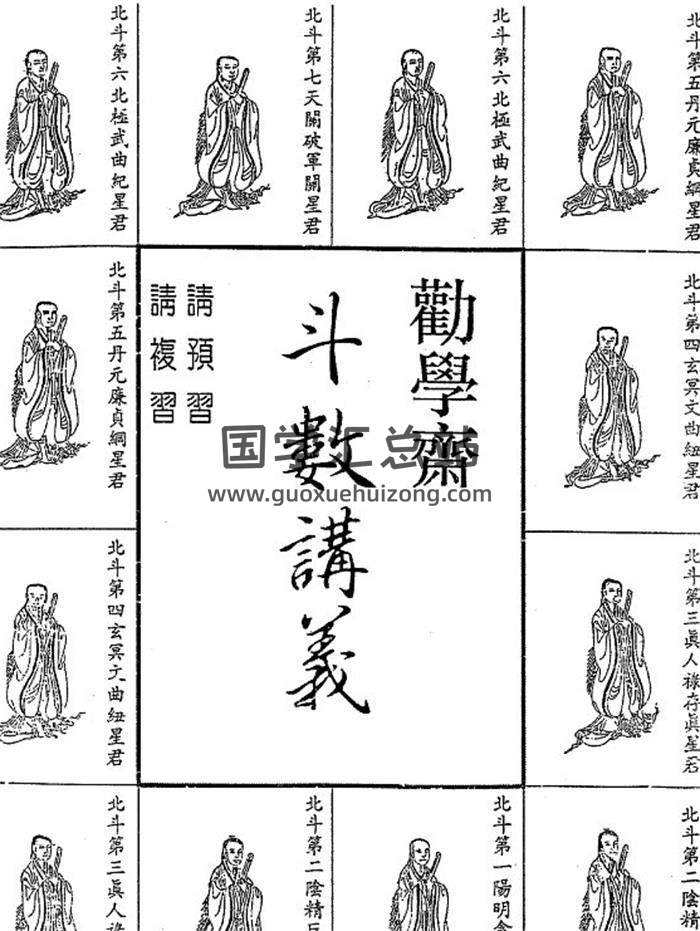 北斗第五丹元廉貞綱星君
北斗第六北極武曲紀星君
北斗第七天關破軍關星君
北斗第六北極武曲紀星君
北斗第四玄冥文曲紐星君
勸學齋
斗數講義
請預習
請複習
国学汇总站
www.guoxuehuizong.com
北斗第五丹元廉貞綱星君
北斗第三眞人祿存眞星君
北斗第四玄冥文曲紐星君
北斗第二陰精
北斗第一陽明
北斗第二陰精
北斗第三眞人祿